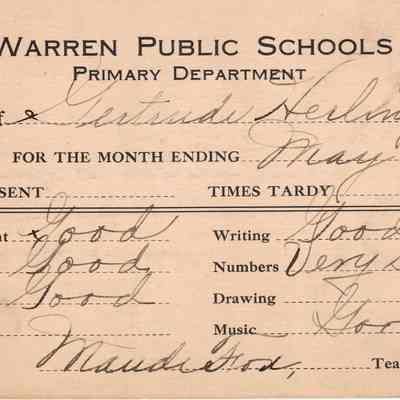 WARREN PUBLIC SCHOOLS
PRIMARY DEPARTMENT
f Gertrude
FOR THE MONTH ENDING May
SENT TIMES TARDY
nt Good Writing Good
Good Numbers Very
Good Drawing
Music Goo
Maude Fox, Tea